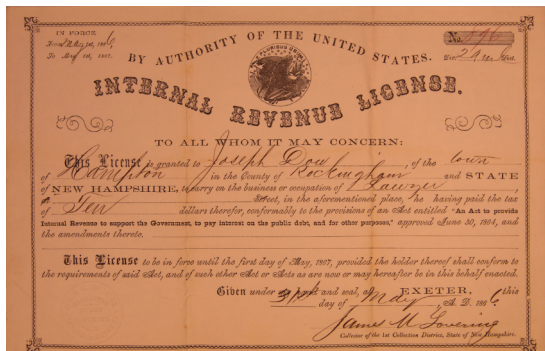 IN FORCE
From May 1st, 1866
To May 1st, 1867.
No. 596
BY AUTHORITY OF THE UNITED STATES.
E PLURIBUS UNUM
INTERNAL REVENUE LICENSE.
TO ALL WHOM IT MAY CONCERN:
This License is granted to Joseph Dow, of the town
of Hampton in the County of Rockingham and STATE
OF NEW HAMPSHIRE, to carry on the business or occupation of Lawyer
Street, in the aforementioned place, he having paid the tax
of Ten dollars therefor, conformably to the provisions of an Act entitled "An Act to provide
Internal Revenue to support the Government, to pay interest on the public debt, and for other purposes," approved June 30, 1864, and
the amendments thereto.
This License to be in force until the first day of May, 1867, provided the holder thereof shall conform to
the requirements of said Act, and of such other Act or Acts as are now or may hereafter be in this behalf enacted.
Given under my hand and seal, at EXETER, this
31st day of May A. D. 1866
James M Lovering
Collector of the 1st Collection District, State of New Hampshire.